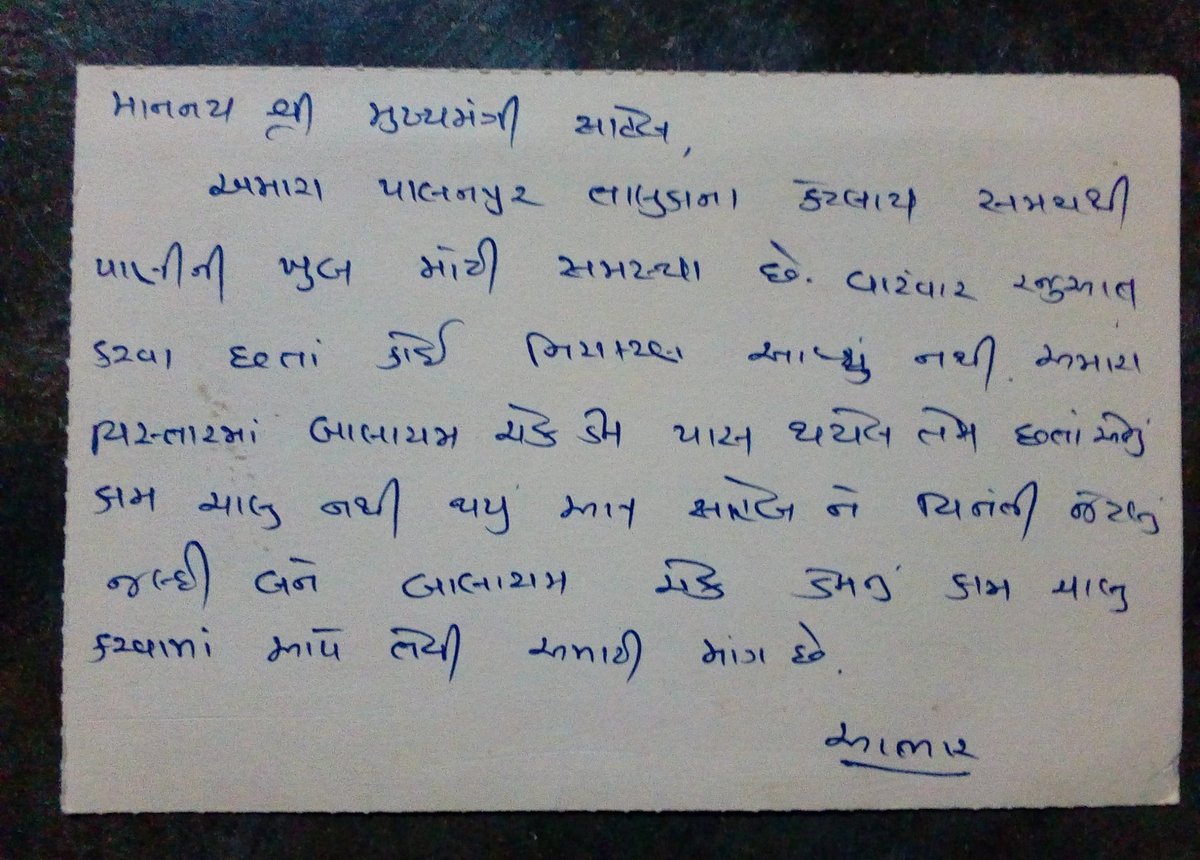 માનનય શ્રી મુખ્યમંત્રી સાહેબ,
અમારા પાલનપુર તાલુકાના કેટલાય સમયથી
પાણીની ખુબ મોટી સમસ્યા છે. વારંવાર રજુઆત
કરવા છતાં કોઈ નિરાકરણ આવ્યું નથી. અમારા
વિસ્તારમાં બાલારામ ચેક ડેમ પાસ થયેલ તેમ છતાં એનું
કામ ચાલુ નથી થયું માત્ર સાહેબ ને વિનંતી જેટલું
જલ્દી બને બાલારામ ચેક ડેમનું કામ ચાલુ
કરવામાં આપે તેવી અમારી માંગ છે.
આભાર